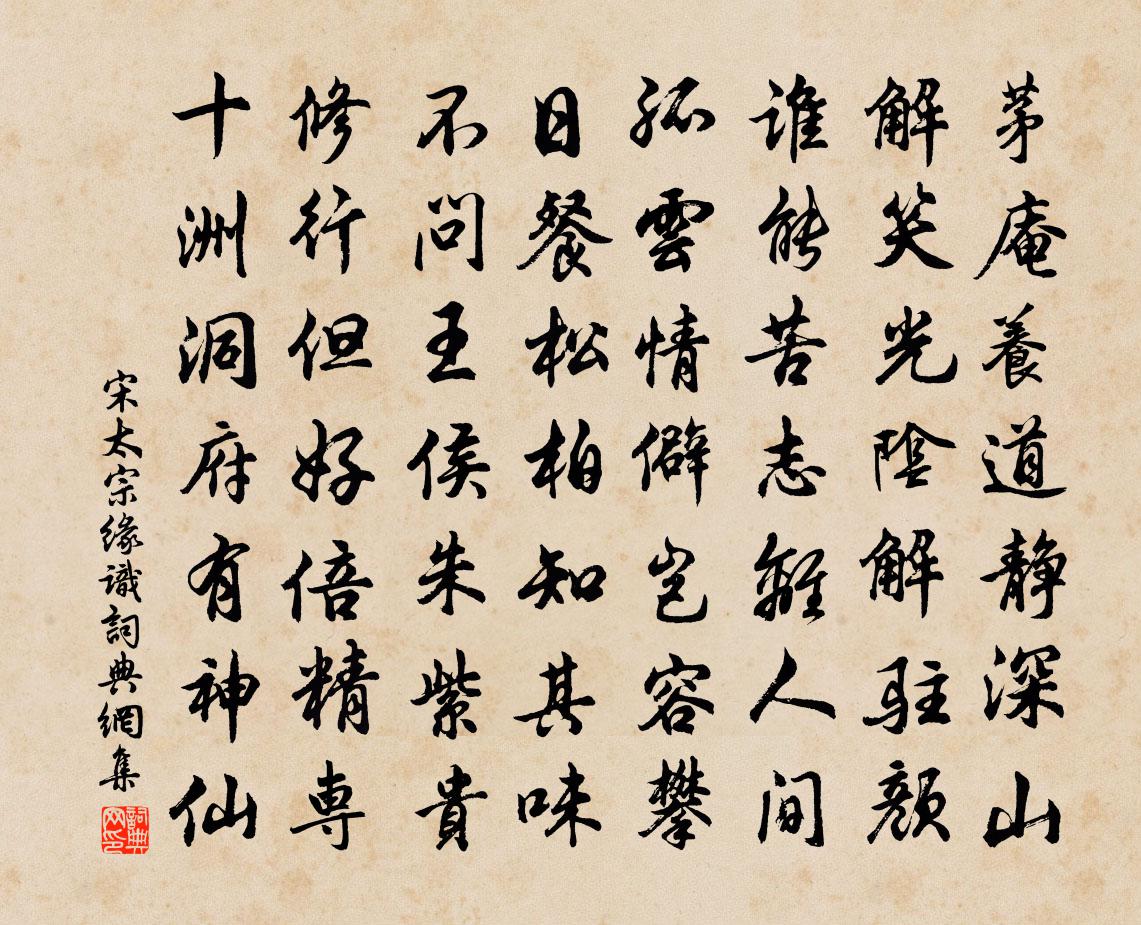 茅庵養道靜深山
解笑光陰解駐顏
誰能苦志離人間
孤雲情僻豈容攀
日餐松柏知其味
不問王侯朱紫貴
修行但好倍精専
十洲洞府有神仙
宋太宗緣識詞典網集
詞典网印